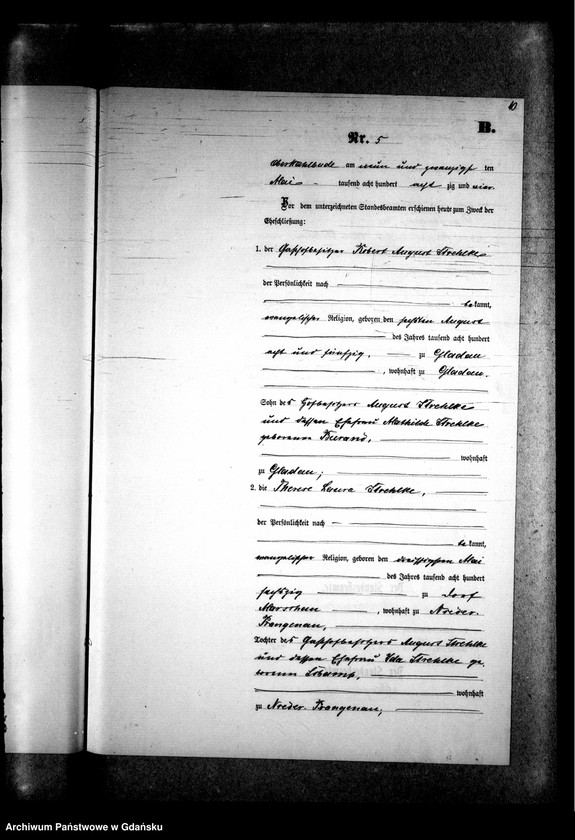 10
B.
Nr. 5
Oberkahlbude am neun und zwanzigst ten
Mai tausend acht hundert acht zig und vier.
Vor dem unterzeichneten Standesbeamten erschienen heute zum Zweck der
Eheschließung:
1. der Gasthofbesitzer Robert August Strehlke
der Persönlichkeit nach
be kannt,
evangelischer Religion, geboren den sechsten August
des Jahres tausend acht hundert
acht und fünfzig. zu Gladau
, wohnhaft zu Gladau.
Sohn des Hofbesitzers August Strehlke
und dessen Ehefrau Mathilde Strehlke
geborenen
wohnhaft
zu Gladau;
2. die Therese Laura Strehlke,
der Persönlichkeit nach
be kannt,
evangelischer Religion, geboren den dreißigsten Mai
des Jahres tausend acht hundert
sechszig zu Dorf
Marschau , wohnhaft zu Nieder-
Prangenau,
Tochter des Gasthofbesitzers August Strehlke
und dessen Ehefrau Ida Strehlke ge-
borenen
wohnhaft
zu Nieder-Prangenau;
Archiwum Państwowe w Gdańsku